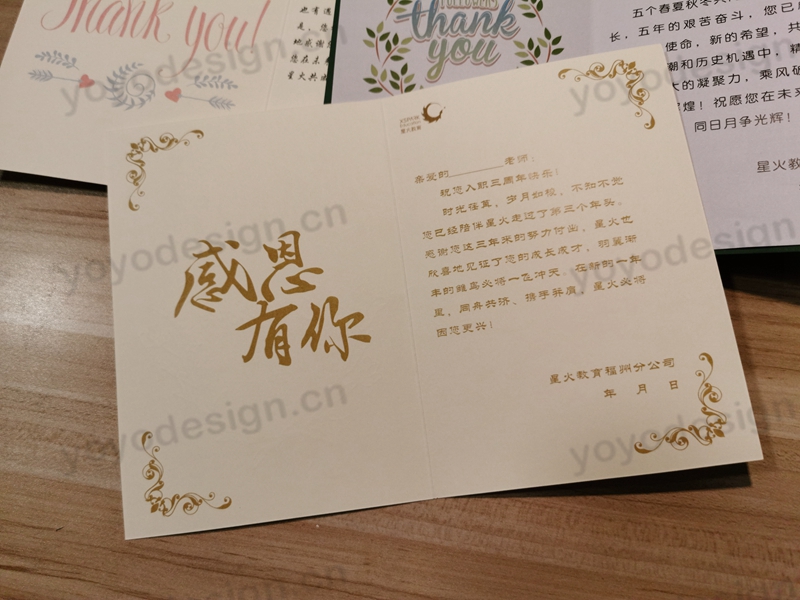 Thank you!
也有遇
是，您
地感谢
您在未
星火共
FOLLOWING
thank
you
五个春夏秋冬
长，五年的艰苦奋斗，您已
使命，新的希望，共
潮和历史机遇中，精
大的凝聚力，乘风破
煌！祝愿您在未来
同日月争光辉！
星火教
感恩
有你
星火教育
亲爱的________老师：
祝您入职三周年快乐！
时光荏苒，岁月如梭，不知不觉
您已经陪伴星火走过了第三个年头。
感谢您这三年来的努力付出，星火也
欣喜地见证了您的成长成才，羽翼渐
丰的雏鸟必将一飞冲天。在新的一年
里，同舟共济、携手并肩，星火必将
因您更兴！
星火教育福州分公司
年 月 日
yoyodesign.cn
yoyodesign.cn
yoyodesign.cn
yoyodesign.cn
yoyodesign.cn
yoyodesign.cn
yoyodesign.cn
yoyodesign.cn